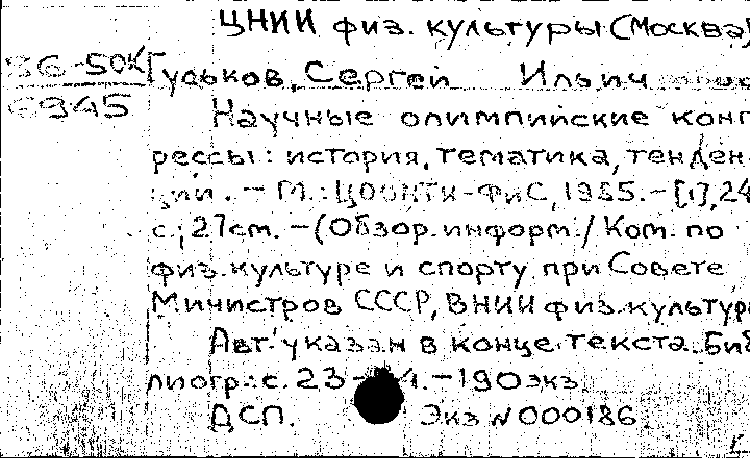 ЦНИИ физ. культуры (Москва)
36-50К Гуськов, Сергей Ильич
6945
Научные олимпийские конг
рессы: история, тематика, тенден
ции. – М.: ЦООНТИ-ФиС, 1985. – [1], 24
с.; 27см. – (Обзор. информ. / Ком. по
физ. культуре и спорту при Совете
Министров СССР, ВНИИ физ. культуры
Авт. указан в конце текста. Биб
лиогр.: с. 23- – 190 экз.
ДСП. Экз N 000186